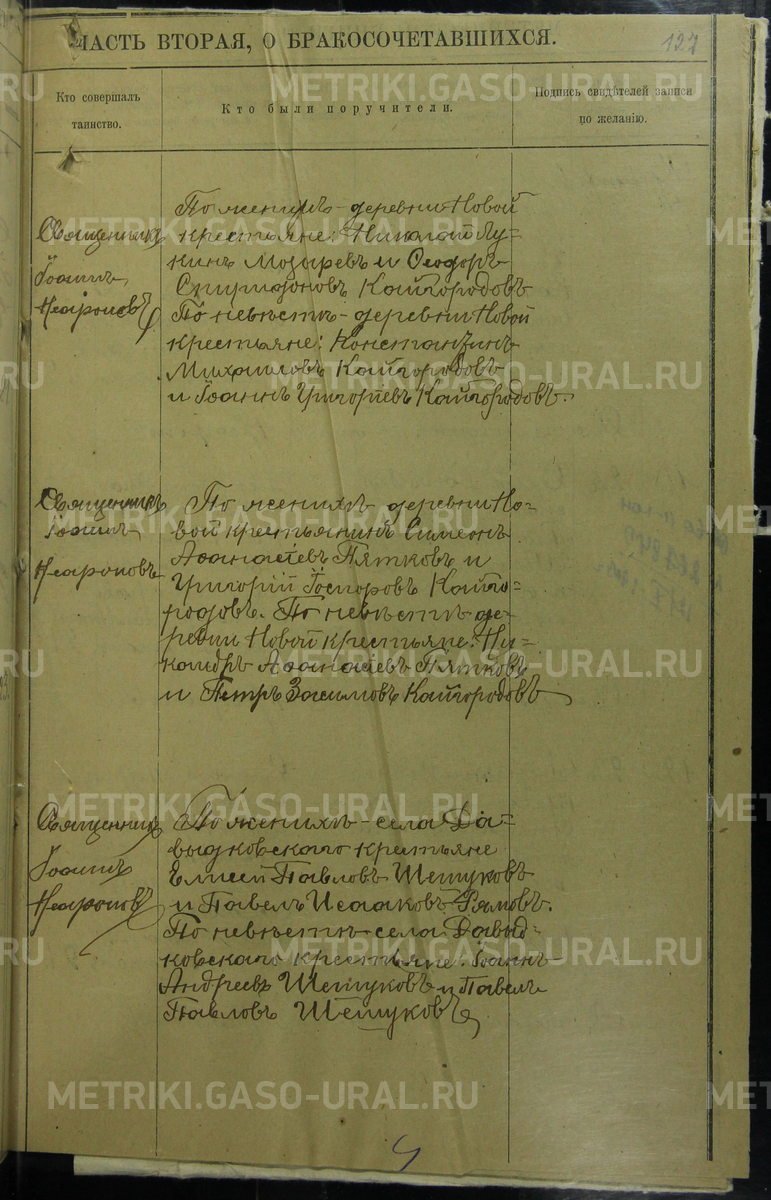 ЧАСТЬ ВТОРАЯ, О БРАКОСОЧЕТАВШИХСЯ.
127
Кто совершалъ таинство.
Кто были поручители.
Подпись свидѣтелей записи по желанію.
Священникъ
Іоаннъ
По женихѣ - деревни Новой
крестьяне: Николай Лу-
кинъ Мозыревъ и Ѳеодоръ
Спиридоновъ Кайгородовъ
По невѣстѣ - деревни Новой
крестьяне: Константинъ
Михаиловъ Кайгородовъ
и Іоаннъ Григоріевъ Кайгородовъ.
Священникъ
Іоаннъ
По женихѣ деревни Но-
вой крестьянинъ Симеонъ
Аѳанасіевъ Пятковъ и
Григорій Кайго-
родовъ. По невѣстѣ де-
ревни Новой крестьяне: Ни-
кандръ Аѳанасіевъ Пятковъ
и Петръ Зосимовъ Кайгородовъ
Священникъ
Іоаннъ
По женихѣ - села Да-
выдковскаго крестьяне
Елисей Павловъ Шешуковъ
и Павелъ Исааковъ
По невѣстѣ - села Давыд-
ковскаго крестьяне: Іоаннъ
Андреевъ Шешуковъ и Павелъ
Павловъ Шешуковъ
METRIKI.GASO-URAL.RU